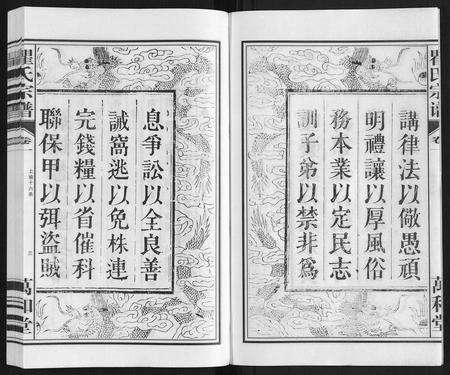 講律法以儆愚頑
明禮讓以厚風俗
務本業以定民志
訓子弟以禁非爲
息爭訟以全良善
誡窩逃以免株連
完錢糧以省催科
聯保甲以弭盜賊
瞿氏宗譜
卷
萬和堂
瞿氏宗譜
卷
上諭十六條
萬和堂